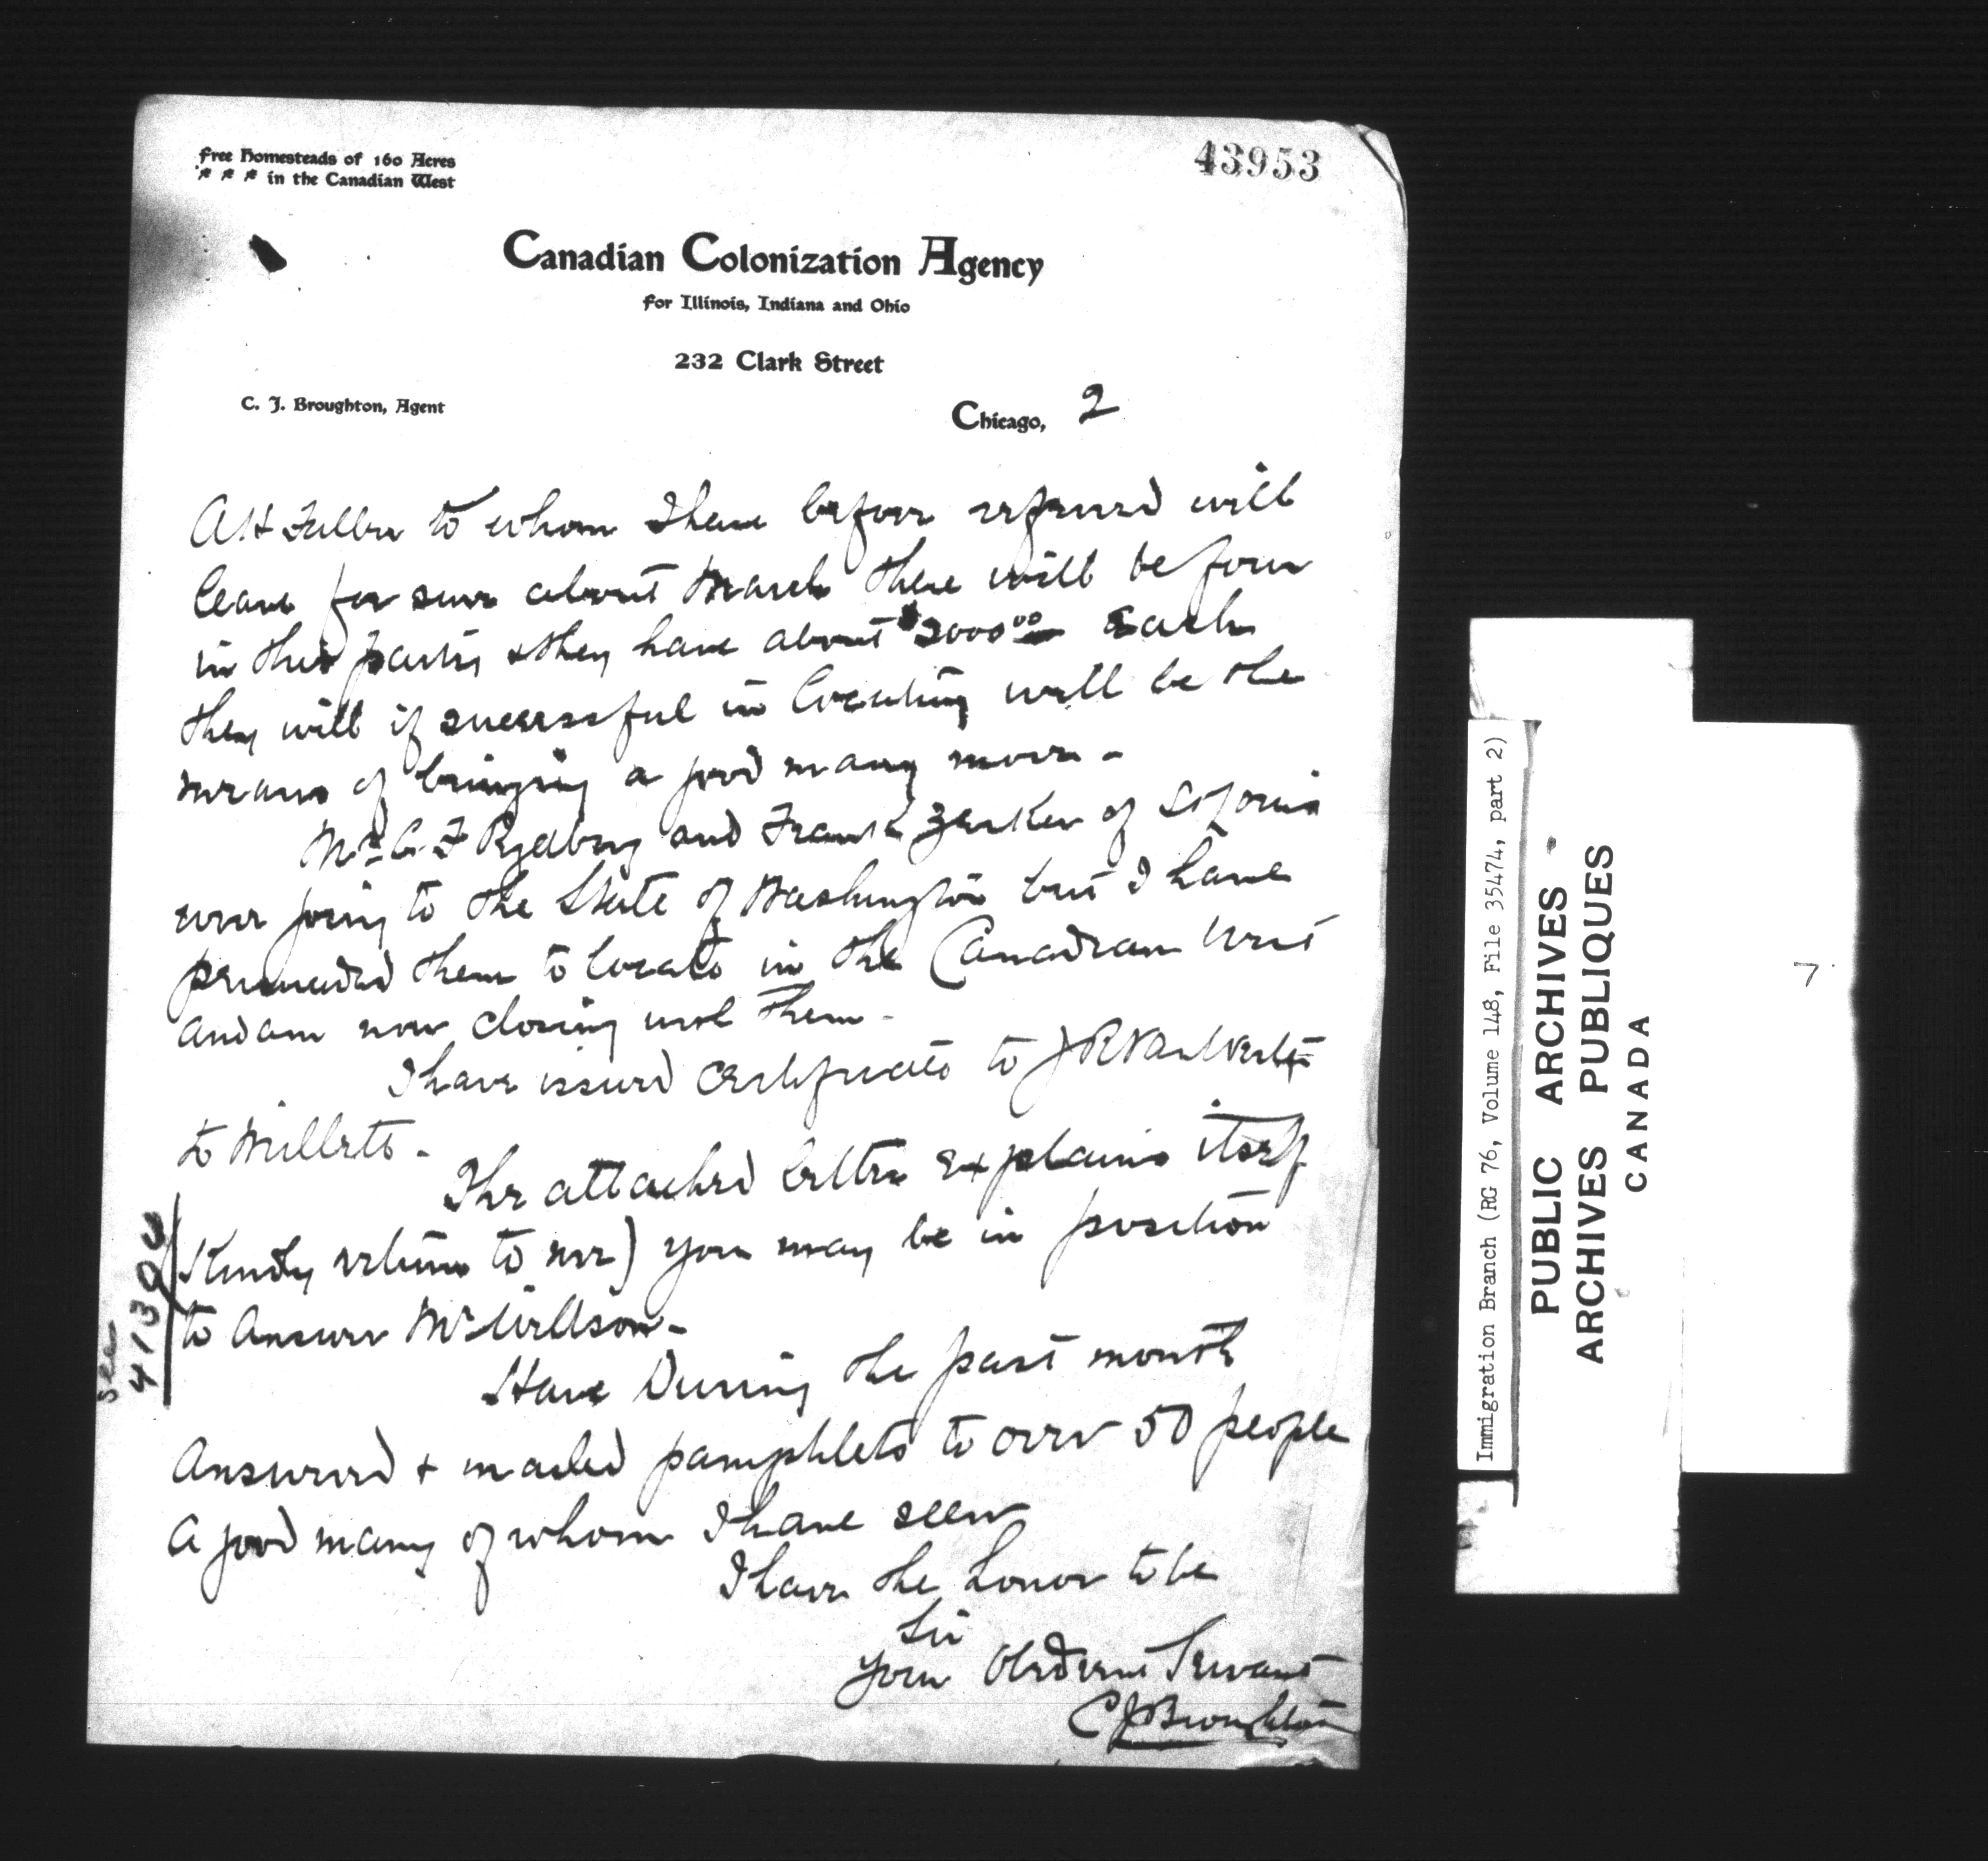 Free Homesteads of 160 Acres
in the Canadian West
43953
Canadian Colonization Agency
for Illinois, Indiana and Ohio
232 Clark Street
C. J. Broughton, Agent
Chicago, 2
A H Fuller to whom I have before referred will
leave for sure about March there will be four
in this party & they have about $2000.00 Each
they will if successful in locating will be the
means of bringing a good many more -
Mr G F Rydberg and Frank of
were going to the State of Washington but I have
persuaded them to locate in the Canadian West
and am now closing with them -
I have issued certificate to J R
to Millets -
The attached letter explains itself
Kindly return to me) you may be in position
to Answer Mr Willson -
See
41390
Have During the past month
Answered & mailed pamphlets to over 50 people
a good many of whom I have seen
I have the honor to be
Sir
Your Obedient Servant
C J Broughton
Immigration Branch (RG 76, Volume 148, File 35474, part 2)
PUBLIC ARCHIVES
ARCHIVES PUBLIQUES
CANADA
7